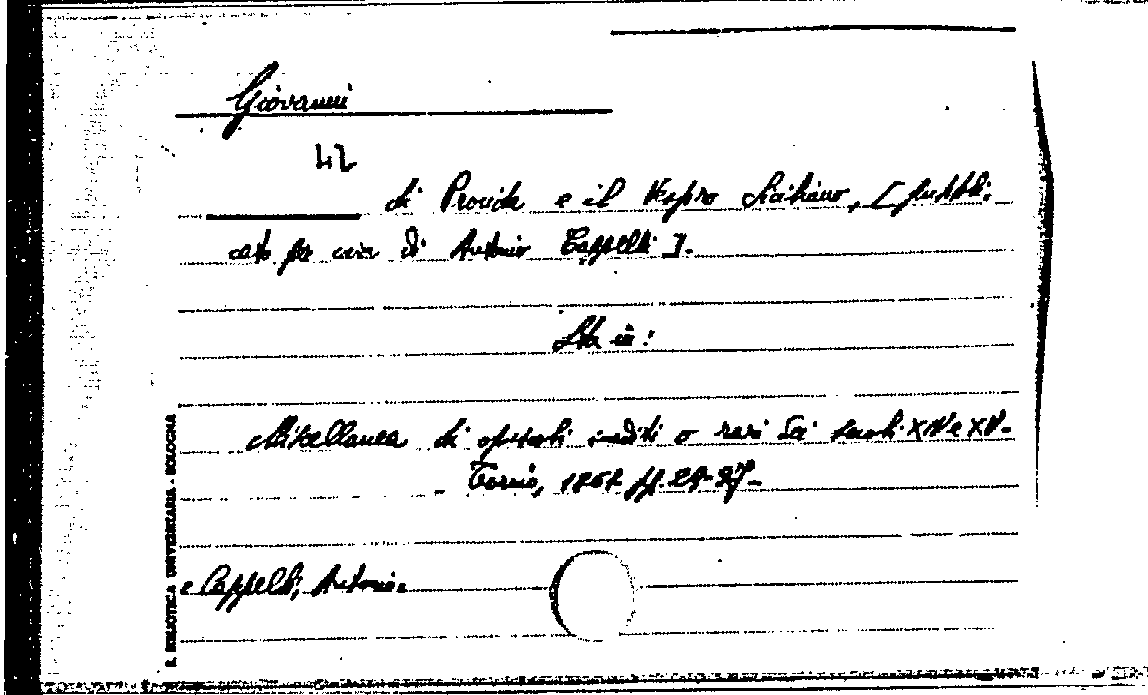 Giovanni
42
di Procida e il Vespro Siciliano, [pubbli-
cato per cura di Antonio Cappelli].
Sta in:
Miscellanea di opuscoli inediti o rari dei secoli XIV e XV.
Torino, 1861
e Cappelli, Antonio
R. BIBLIOTECA UNIVERSITARIA - BOLOGNA